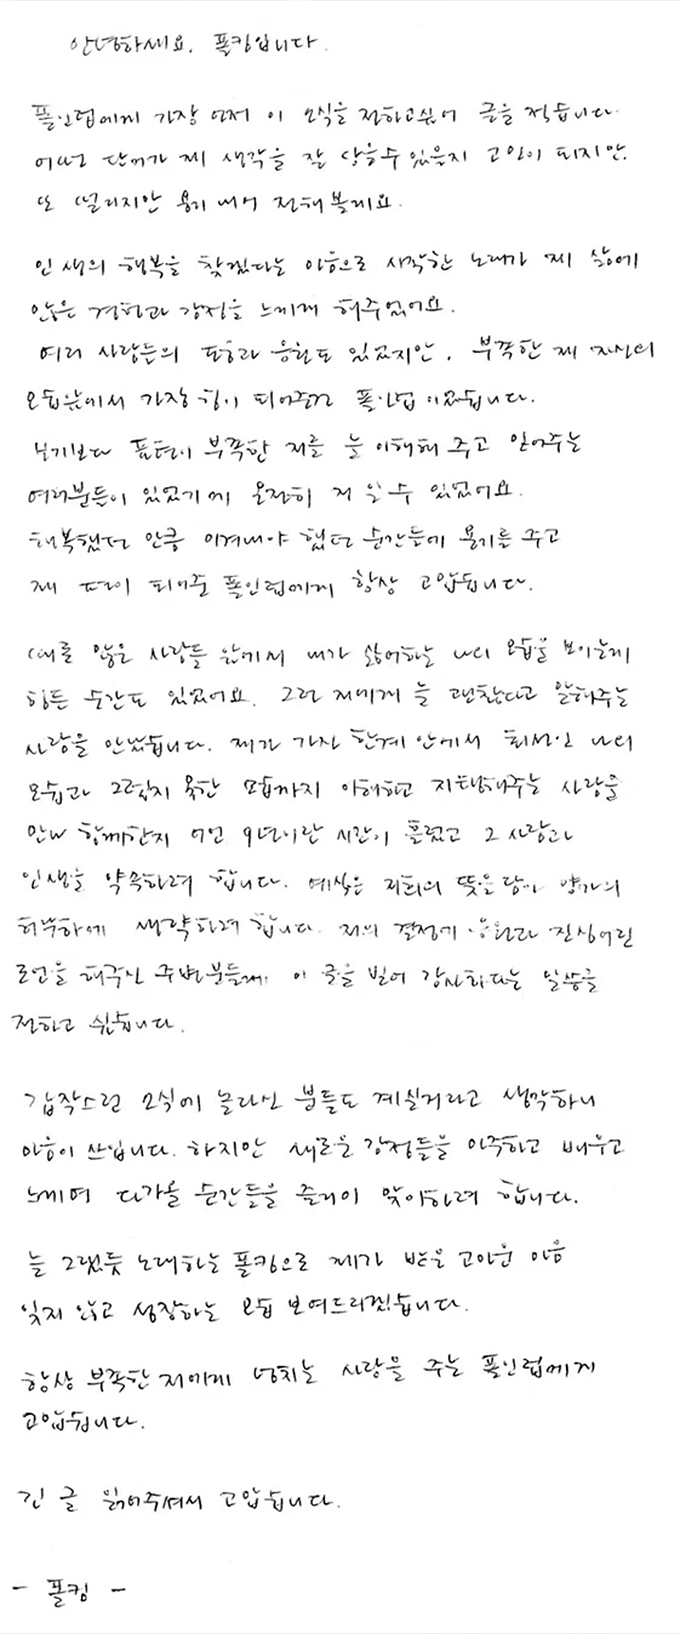 안녕하세요. 폴킴입니다.
폴인럽에게 가장 먼저 이 소식을 전하고싶어 글을 적습니다.
어떤 단어가 제 생각을 잘 담을수 있을지 고민이 되지만,
또 떨리지만 용기 내어 전해볼게요.
인생의 행복을 찾겠다는 마음으로 시작한 노래가 제 삶에
많은 경험과 감정을 느끼게 해주었어요.
여러 사람들의 도움과 응원도 있었지만, 부족한 제 자신의
모습앞에서 가장 힘이 되어주던 폴인럽 이었습니다.
보기보다 표현이 부족한 저를 늘 이해해 주고 믿어주는
여러분들이 있었기에 온전히 저 일 수 있었어요.
행복했던 만큼 이겨내야 했던 순간들에 용기를 주고
제 편이 되어준 폴인럽에게 항상 고맙습니다.
때로 많은 사람들 앞에서 내가 싫어하는 나의 모습을 보이는게
힘든 순간도 있었어요. 그런 저에게 늘 괜찮다고 말해주는
사람을 만났습니다. 제가 가진 한계 안에서 최선인 나의
모습과 그렇지 못한 모습까지 이해하고 지탱해주는 사람을
만나 함께한지 어언 9년이란 시간이 흘렀고 그 사람과
인생을 약속하려 합니다. 예식은 저희의 뜻을 담아 양가의
허락하에 생략하려 합니다. 저의 결정에 응원과 진심어린
조언을 해주신 주변분들께 이 글을 빌어 감사하다는 말씀을
전하고 싶습니다.
갑작스런 소식에 놀라신 분들도 계실거라고 생각하니
마음이 쓰입니다. 하지만 새로운 감정들을 마주하고 배우고
느끼며 다가올 순간들을 즐거이 맞이하려 합니다.
늘 그랬듯 노래하는 폴킴으로 제가 받은 고마운 마음
잊지 않고 성장하는 모습 보여드리겠습니다.
항상 부족한 저에게 넘치는 사랑을 주는 폴인럽에게
고맙습니다.
긴 글 읽어주셔서 고맙습니다.
- 폴킴 -